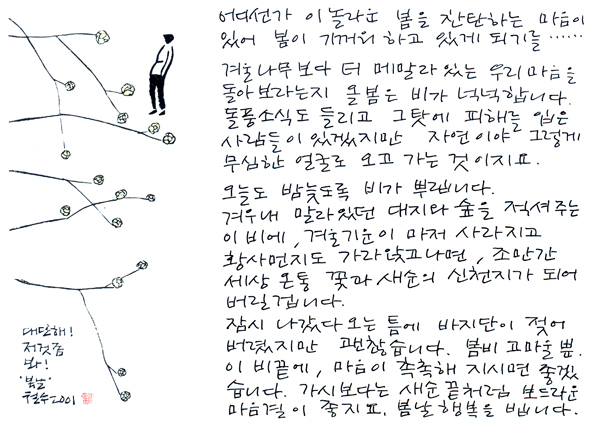 어디선가 이 놀라운 봄을 찬탄하는 마음이
있어 봄이 기꺼워 하고 있게 되기를……
겨울나무보다 더 메말라 있는 우리 마음을
돌아보라는지 올봄은 비가 넉넉합니다.
돌풍소식도 들리고 그 탓에 피해를 입은
사람들이 있겠지만 자연이야 그렇게
무심한 얼굴로 오고 가는 것이지요.
오늘도 밤늦도록 비가 뿌립니다.
겨우내 말라있던 대지와 숲을 적셔주는
이 비에, 겨울기운이 마저 사라지고
황사먼지도 가라앉고나면, 조만간
세상 온통 꽃과 새순의 신천지가 되어
버릴겁니다.
잠시 나갔다 오는 틈에 바지단이 젖어
버렸지만 괜찮습니다. 봄비 고마울 뿐.
이 비끝에, 마음이 촉촉해 지시면 좋겠
습니다. 가시보다는 새순 끝처럼 보드라운
마음결이 좋지요. 봄날 행복을 빕니다.
대단해!
저것좀
봐!
'봄날'
철수2001